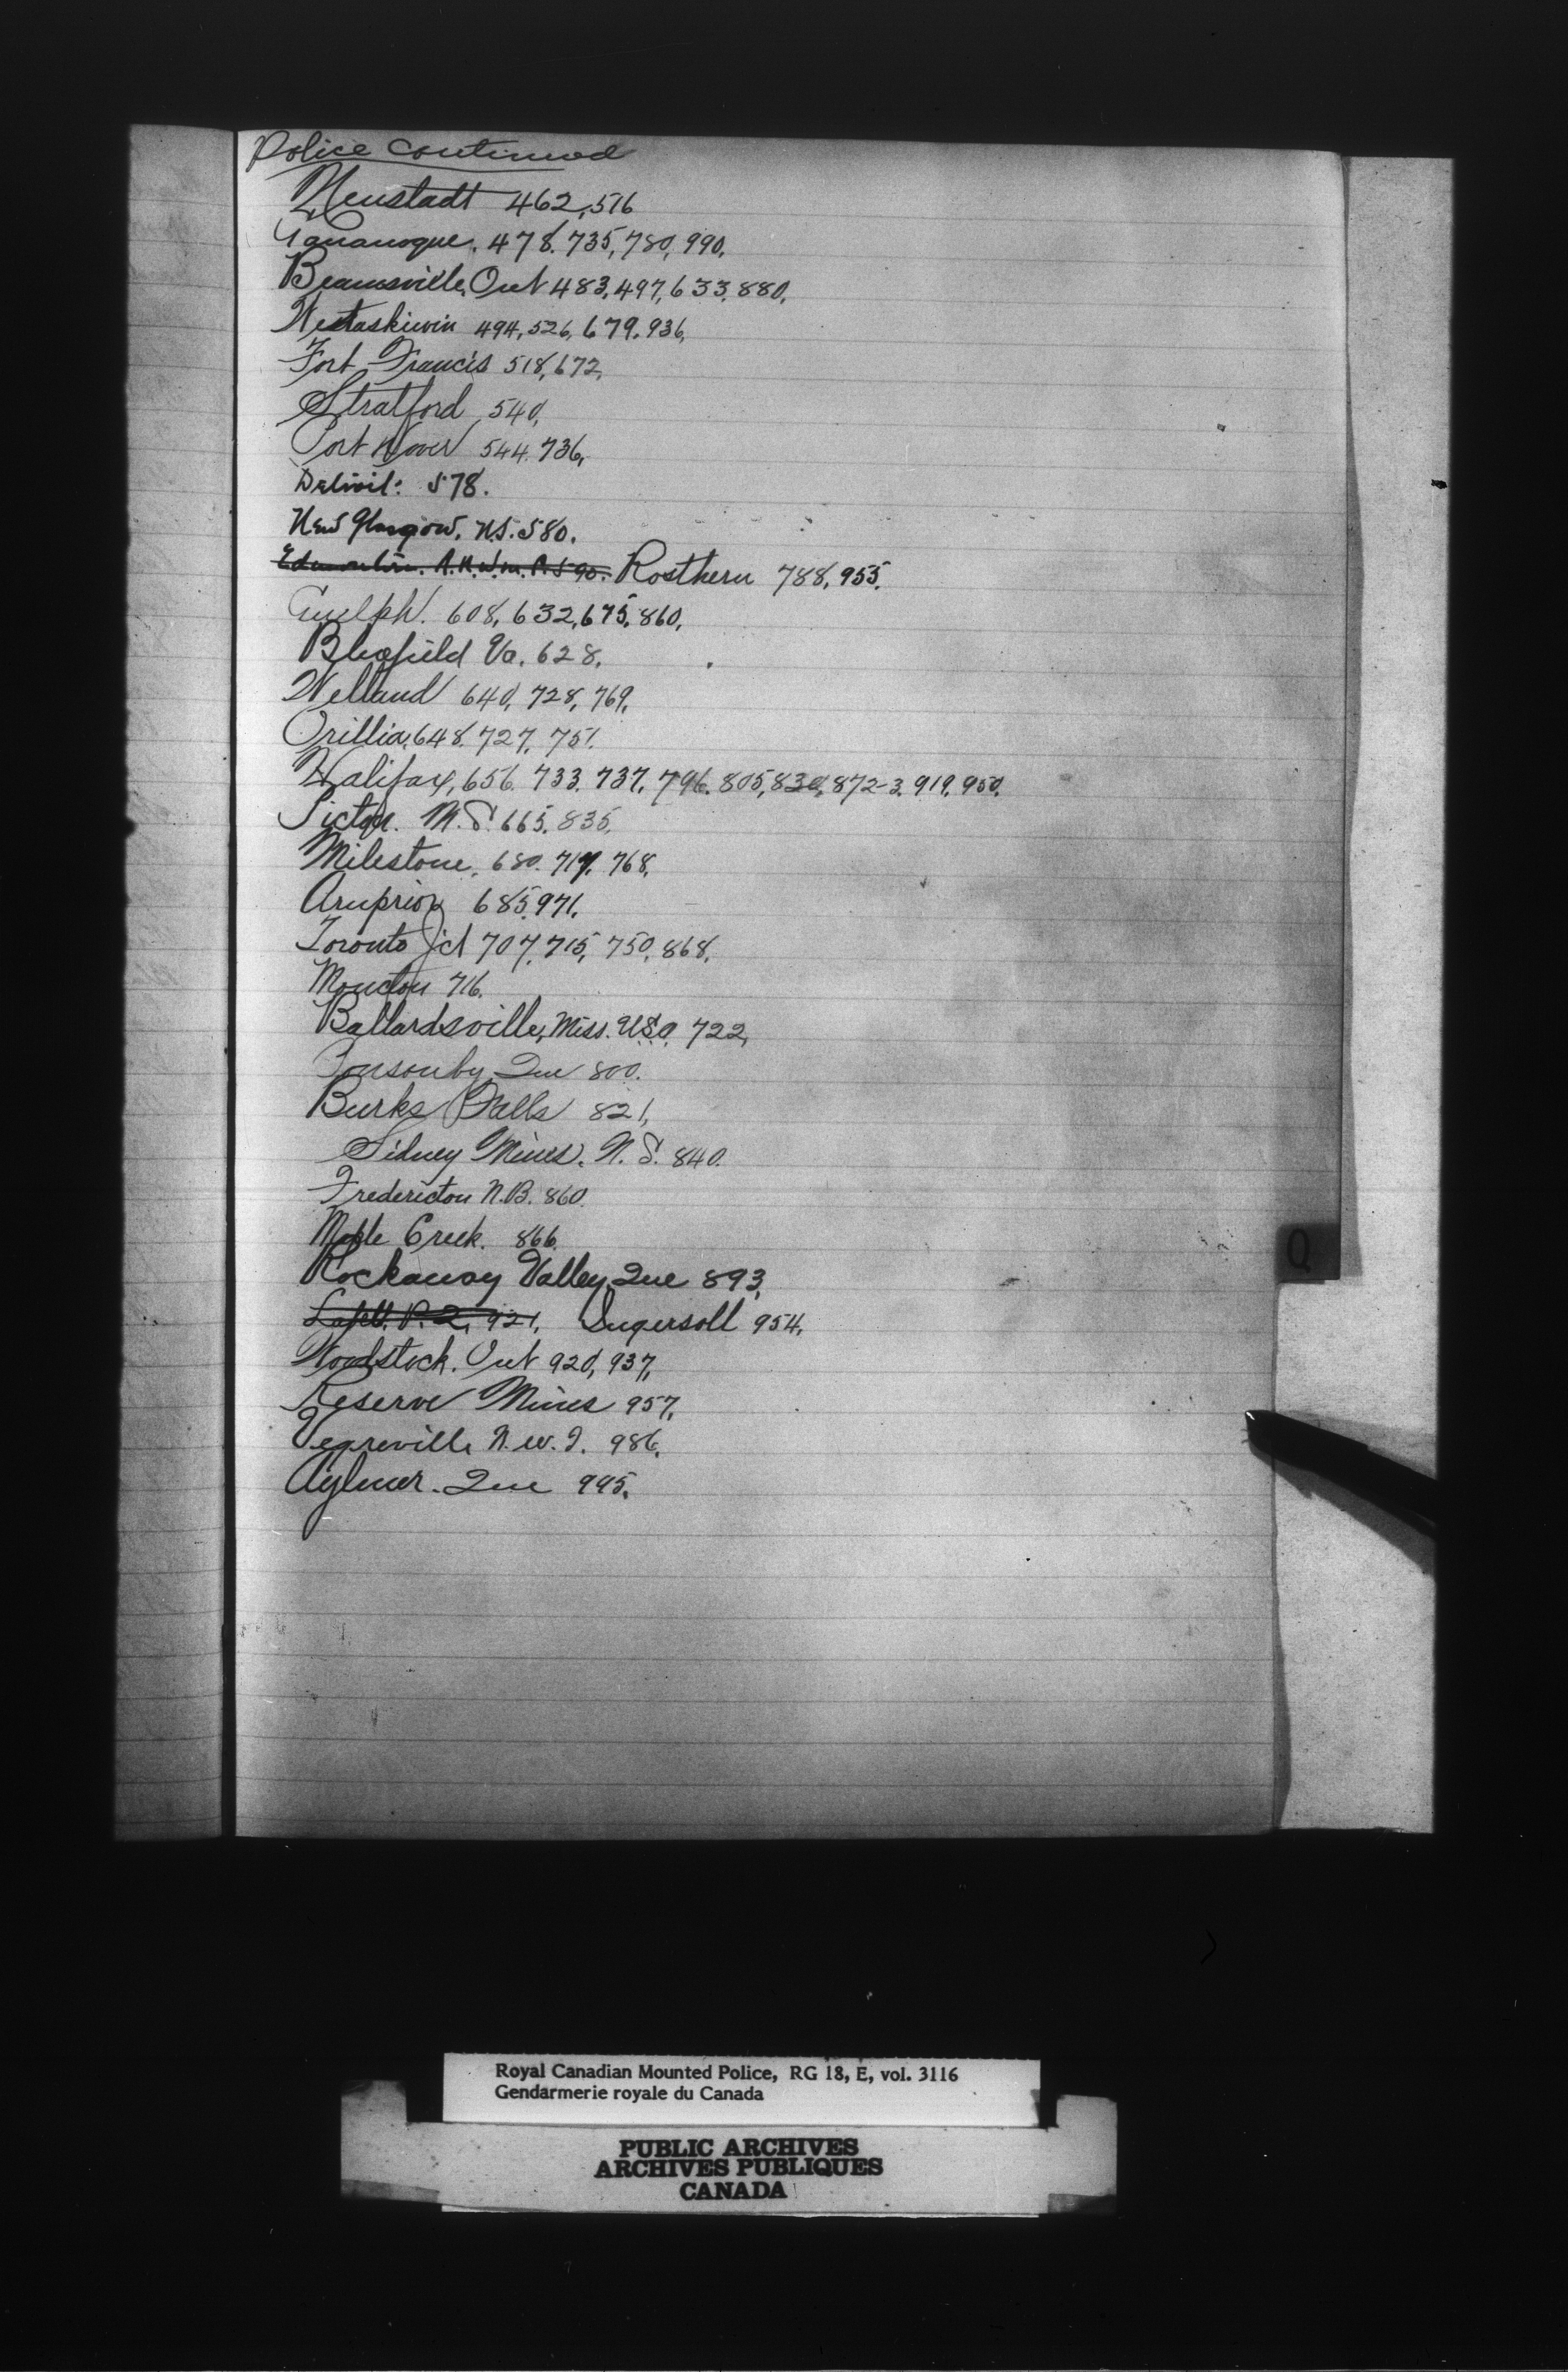 Police continued
Neustadt 462, 516
Gananoque. 478. 735, 780, 990.
Beamsville, Ont 483, 497, 633, 880,
Wetaskiwin 494, 526, 679, 936,
Fort Francis 518, 672,
Stratford 540,
Port Dover 544. 736,
Detroit: 578.
New Glasgow. N.S. 580.
Edmonton. R.N.W.M.P. 590. Rosthern 788, 955.
Guelph. 608, 632, 675, 860,
Bluefield Va. 628.
Welland 640, 728, 769,
Orillia, 648. 727, 751.
Halifax, 656. 733. 737, 796. 805, 830, 872-3. 919. 950.
Pictou. N.S. 665. 835.
Milestone. 680. 719. 768.
Arnprior 685. 971.
Toronto Jct 707. 715, 750. 868.
Moncton 716.
Ballardsville, Miss. U.S.A. 722,
Ponsonby Que 800.
Burks Falls 821,
Sidney Mines. N.S. 840.
Fredericton N.B. 860.
Maple Creek. 866.
Rockaway Valley, Que 893.
P.Q. 921. Ingersoll 954.
Woodstock. Ont 920, 937,
Reserve Mines 957,
Vegreville N.W.T. 986.
Aylmer. Que 995.
Q
Royal Canadian Mounted Police, RG 18, E, vol. 3116
Gendarmerie royale du Canada
PUBLIC ARCHIVES
ARCHIVES PUBLIQUES
CANADA